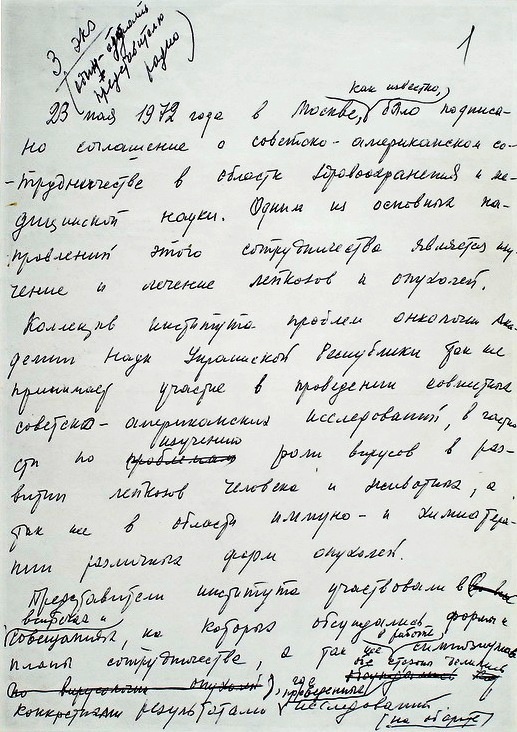 3 экз
(отдать
представителю
радио)
1
как известно,
23 мая 1972 года в Москве, было подписа-
но соглашение о советско-американском со-
-трудничестве в области здравоохранения и ме-
дицинской науки. Одним из основных на-
правлений этого сотрудничества является изу-
чение и лечение лейкозов и опухолей.
Коллектив института проблем онкологии Ака-
демии Наук Украинской Республики так же
принимает участие в проведении совместных
советско-американских исследований, в частно
изучению
сти по проблемам роли вирусов в раз-
витии лейкозов человека и животных, а
так же в области иммуно- и химиотера-
пии различных форм опухолей.
Представители института участвовали в
встречах и
совещаниях, на которых обсуждались формы и
в работе
планы сотрудничества, а так же симпозиумов
где
по вирусологии опухолей проведенных
конкретными результатами исследований
(на обороте)